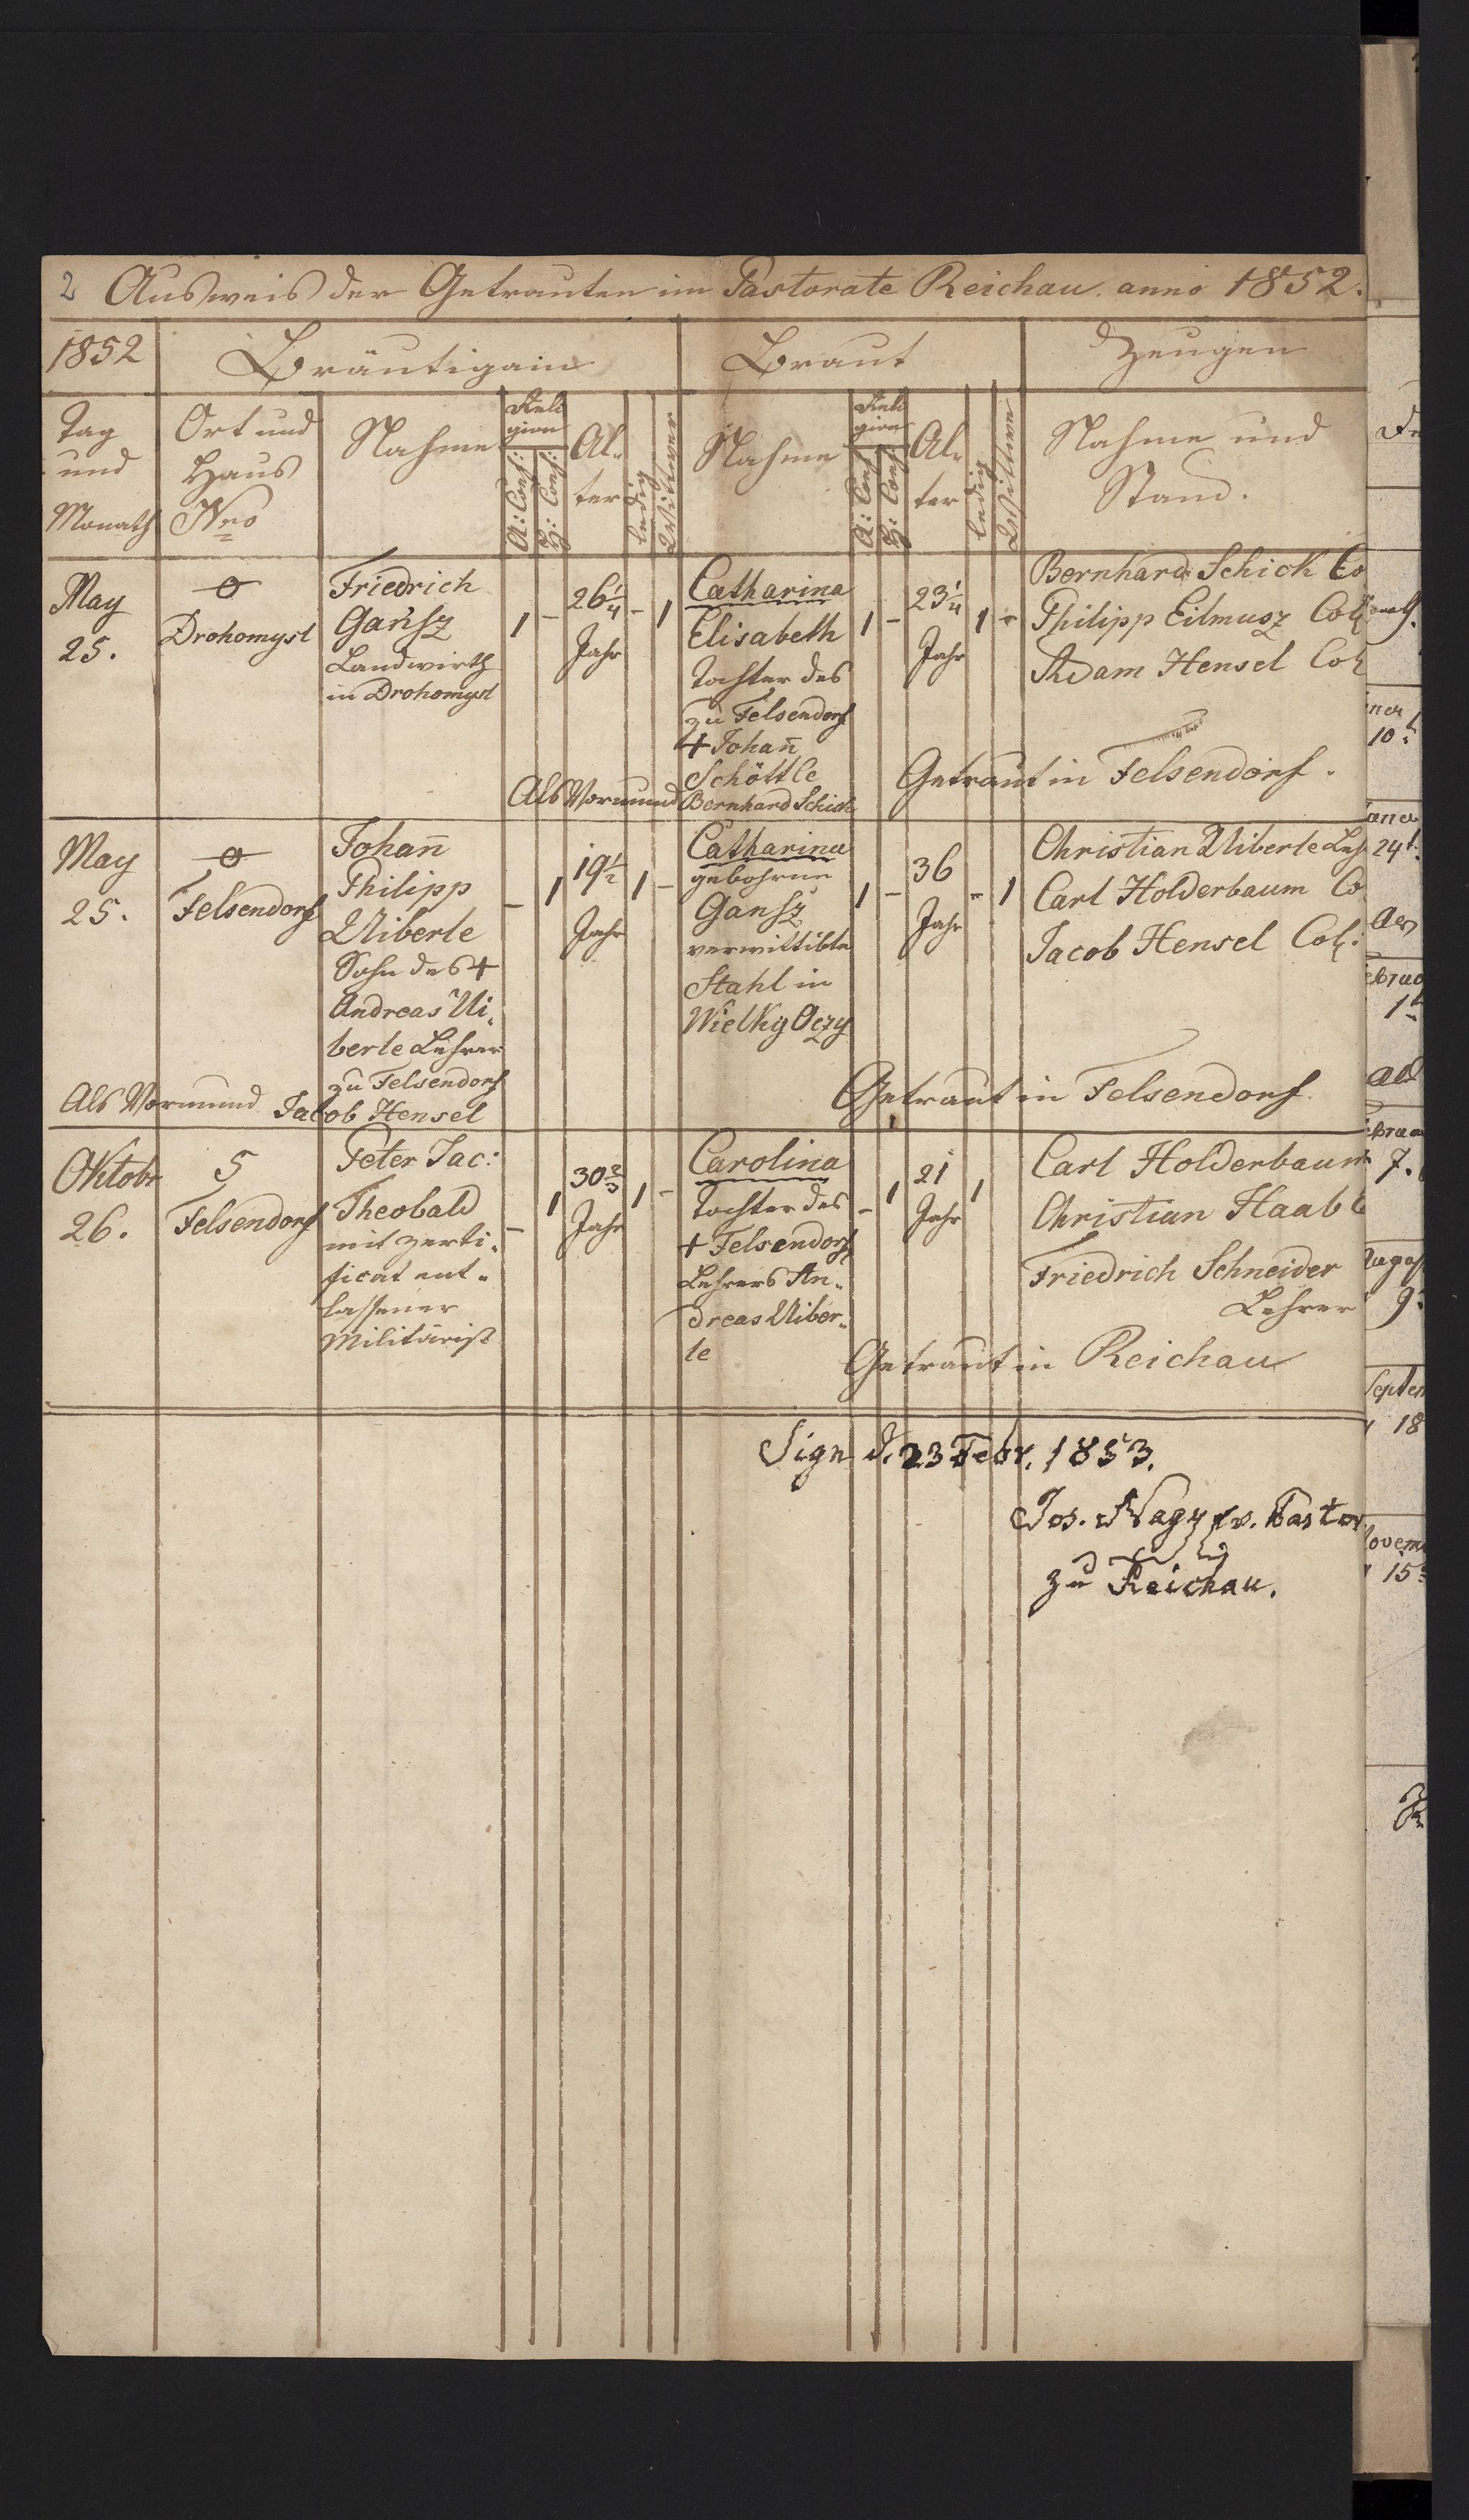 2 Ausweis der Getrauten im Pastorate Reichau. anno 1852.
1852 Bräutigam Braut Zeugen
Tag und Monath
Ort und Haus Nro
Nahme
Religion
A: Conf: H: Conf:
Alter
ledig
Wittwer
Nahme
Religion
A: Conf: H: Conf:
Alter
ledig
Wittwe
Nahme und Stand.
May
25.
0
Drohomysl
Friedrich
Gansz
Landwirth
in Drohomysl
1 -
26 1/4
Jahr
- 1
Catharina
Elisabeth
Tochter des
zu Felsendorf
+ Johan̄
Schöttle
Als Vormund Bernhard Schick
1 -
23 1/4
Jahr
1 -
Bernhard Schick Co
Philipp Eilmusz Col
Adam Hensel Col
Getraut in Felsendorf.
May
25.
0
Felsendorf
Johan̄
Philipp
Uiberle
Sohn des +
Andreas Ui„
berle Lehrer
zu Felsendorf
Als Vormund Jacob Hensel
- 1
19 1/2
Jahr
1 -
Catharina
gebohrne
Gansz
verwittibte
Stahl in
Wielky Oczy
1 -
36
Jahr
- 1
Christian Uiberle Leh
Carl Holderbaum Co
Jacob Hensel Col:
Getraut in Felsendorf.
Oktobr
26.
5
Felsendorf
Peter Jac:
Theobald
mit zerti„
ficat ent„
lassener
Militärist
- 1
30 2/3
Jahr
1 -
Carolina
Tochter des
+ Felsendorf
Lehrers An„
dreas Uiber„
le
- 1
21
Jahr
1
Carl Holderbaum
Christian Haab
Friedrich Schneider
Lehrer
Getraut in Reichau
Sign d. 23 Febr. 1853.
Jos. Nagy ev. Pastor
zu Reichau.